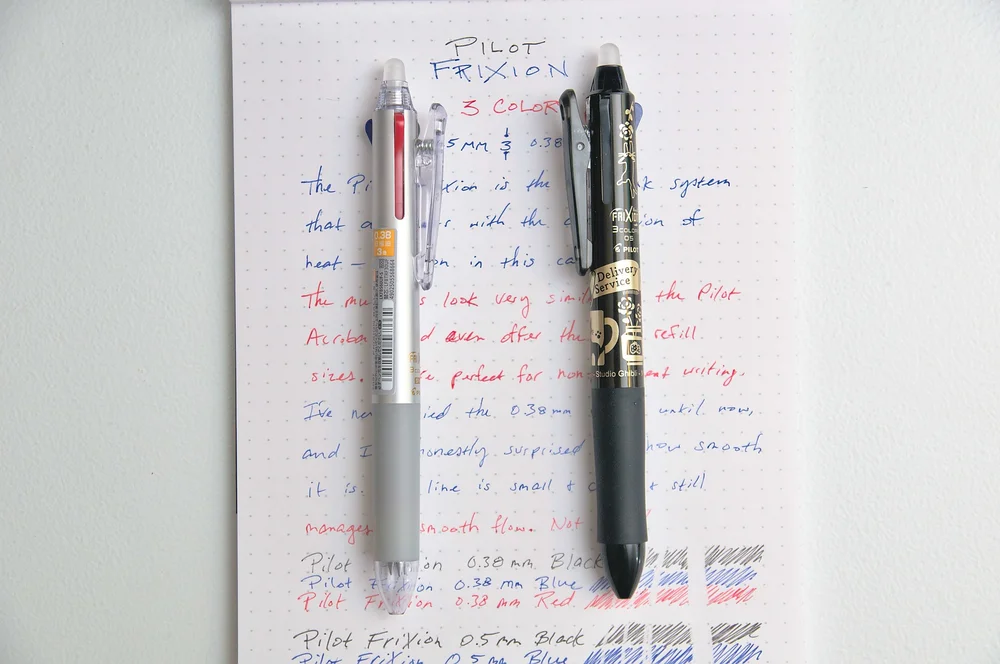 PILOT
FRIXION
3 COLOR
5 MM 3 0.38
The Pi xion is the k system
that with the ion of
heat — on in this ca
The mu s look very simil the Pilot
Acroba d even offer the refill
sizes. re perfect for non ent writing.
I've ne ied the 0.38mm until now,
and I honestly surprised how smooth
it is. line is small & still
manages smooth flow. Not
Pilot ion 0.38 mm Black
Pilot Frixion 0.38 mm Blue
Pilot Frixion 0.38 mm Red
Pilot FriXion 0.5mm Black
Pilot FriXion 0.5mm Blue
0.38
FRIXION
3 COLOR
05
PILOT
Delivery
Service
Studio Ghibli